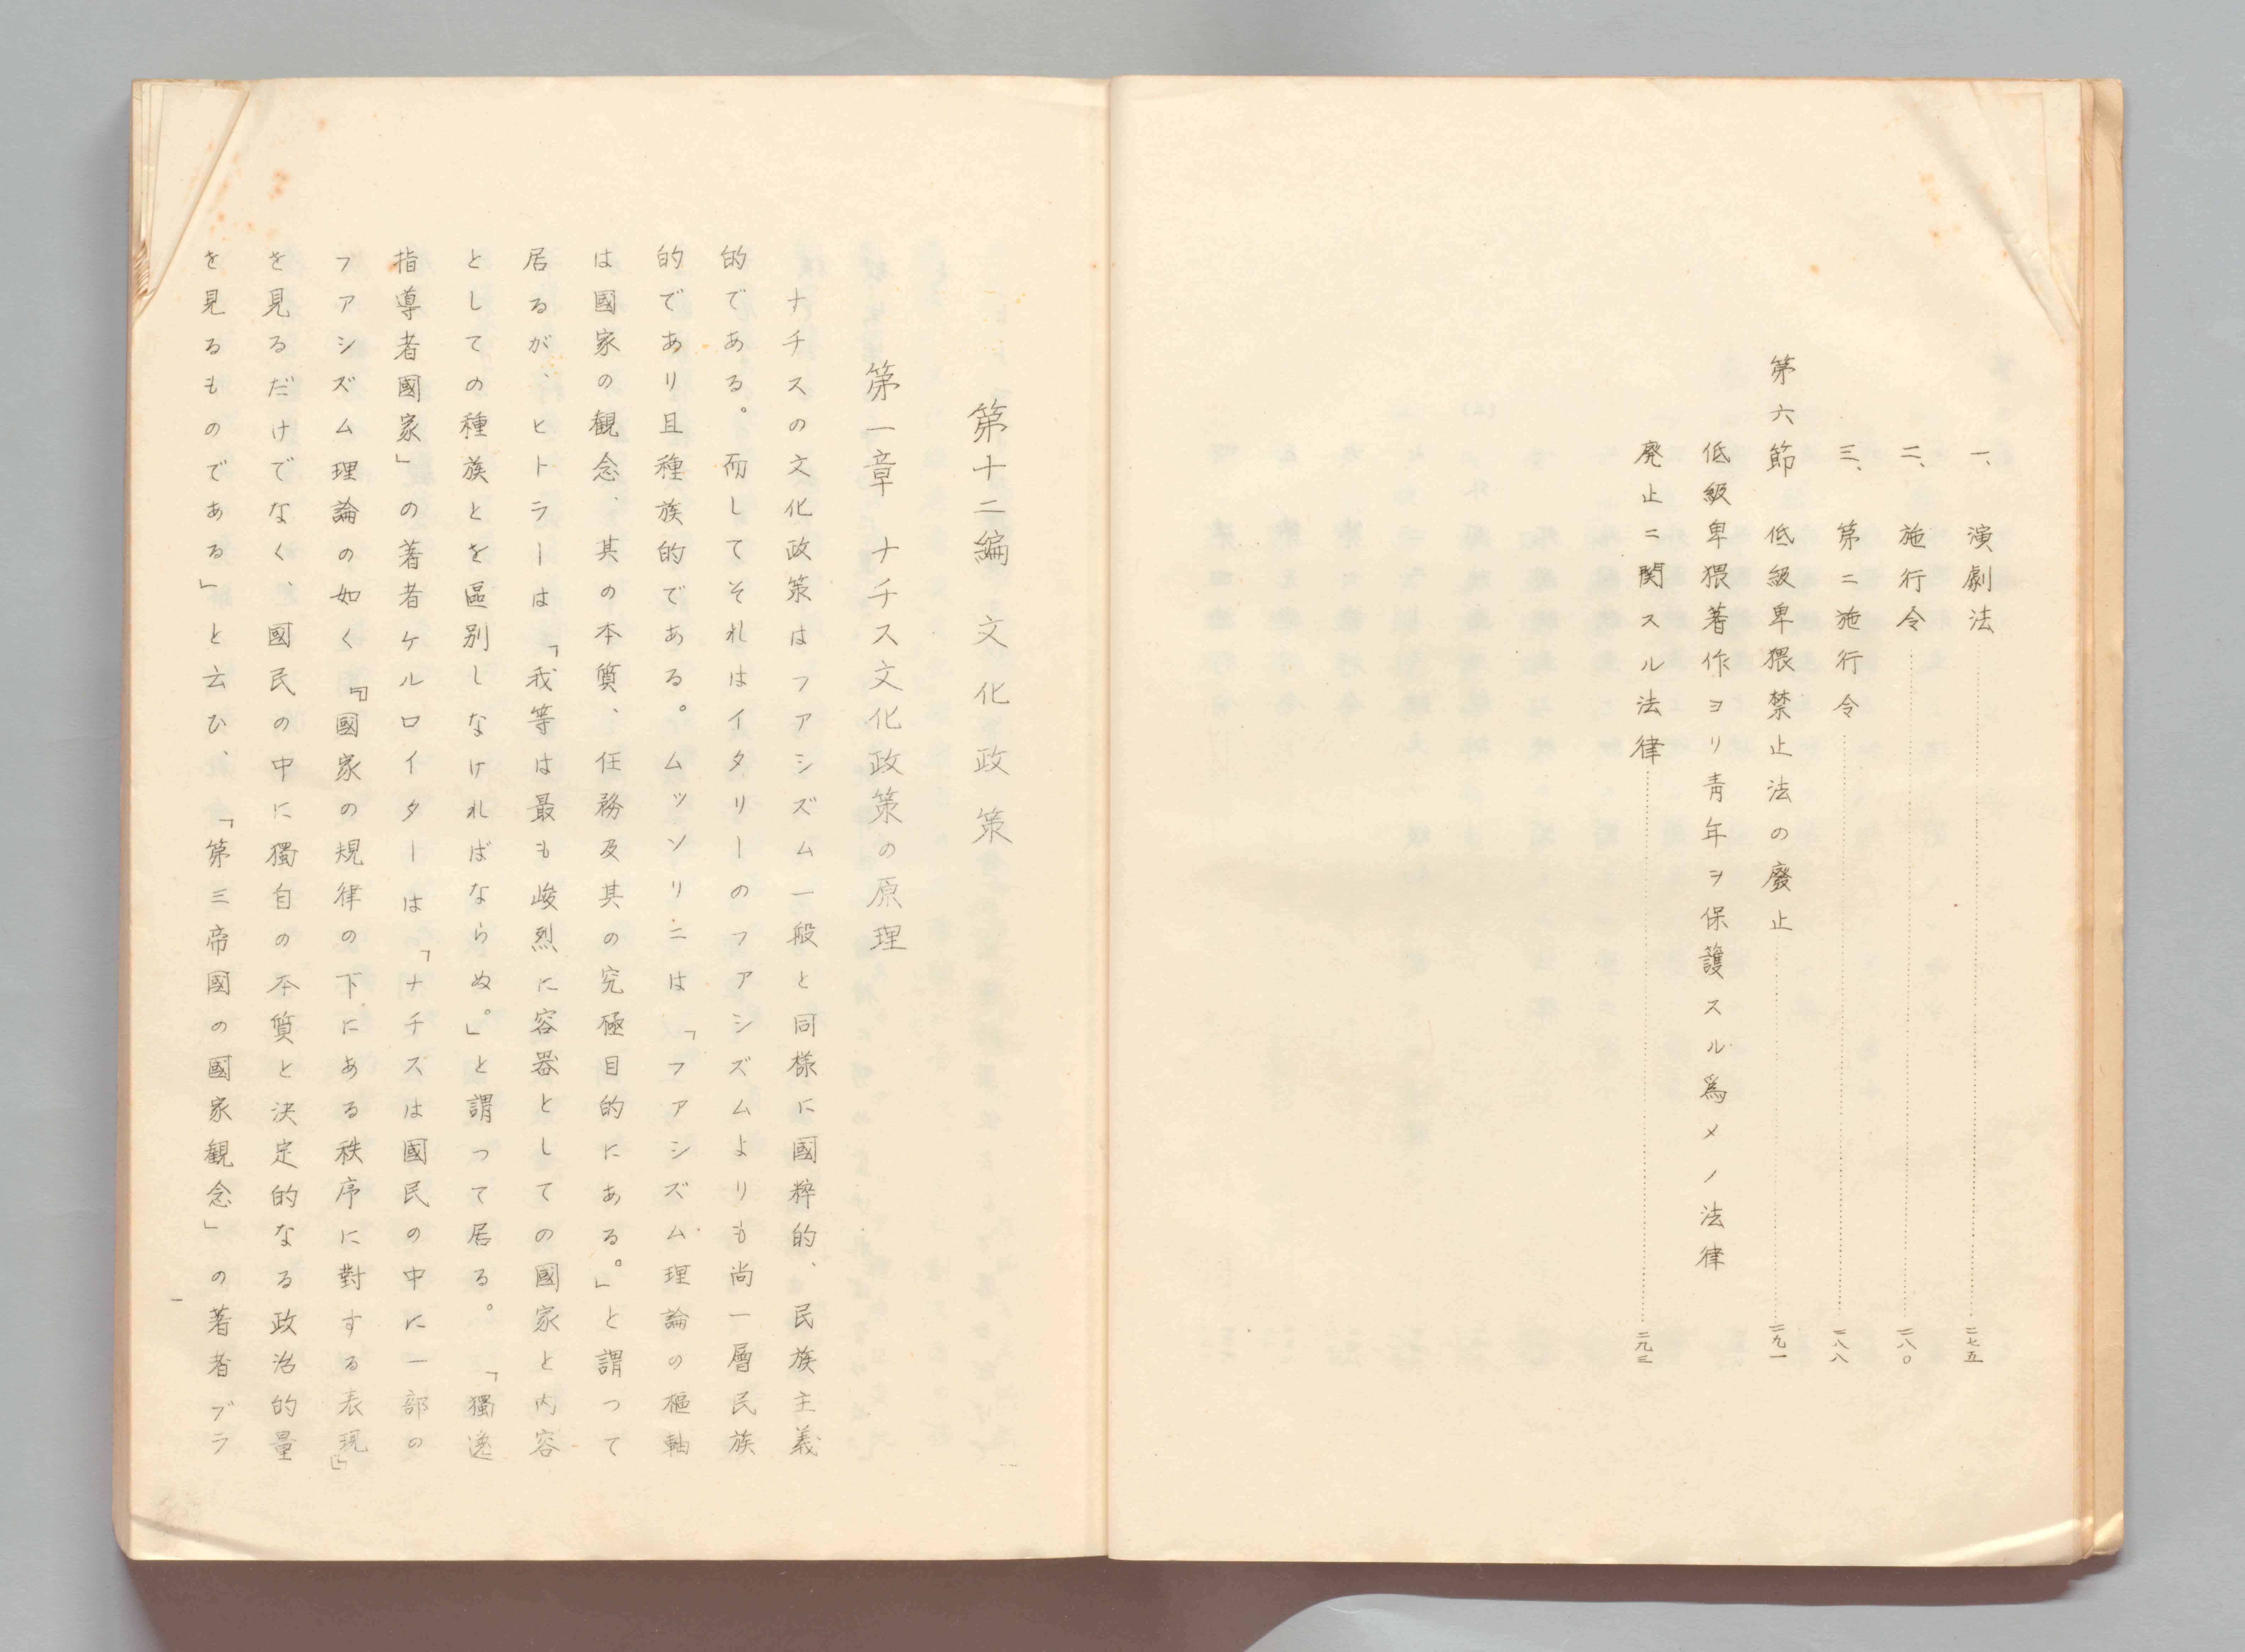 一、演劇法…………二七五
二、施行令…………二八〇
三、第二施行令…………二八八
第六節 低級卑猥禁止法の廢止…………二九一
低級卑猥著作ヨリ青年ヲ保護スル爲メノ法律
廃止ニ関スル法律…………二九三
第十二編 文化政策
第一章 ナチス文化政策の原理
ナチスの文化政策はファシズム一般と同様に國粹的、民族主義
的である。而してそれはイタリーのファシズムよりも尚一層民族
的であり且種族的である。ムッソリニは「ファシズム理論の樞軸
は國家の観念、其の本質、任務及其の究極目的にある。」と謂って
居るが、ヒトラーは「我等は最も峻烈に容器としての國家と内容
としての種族とを區別しなければならぬ。」と謂って居る。「獨逸
指導者國家」の著者ケルロイターは「ナチスは國民の中に一部の
ファシズム理論の如く『國家の規律の下にある秩序に對する表現』
を見るだけでなく、國民の中に獨自の本質と決定的なる政治的量
を見るものである」と云ひ、「第三帝國の國家観念」の著者ブラ